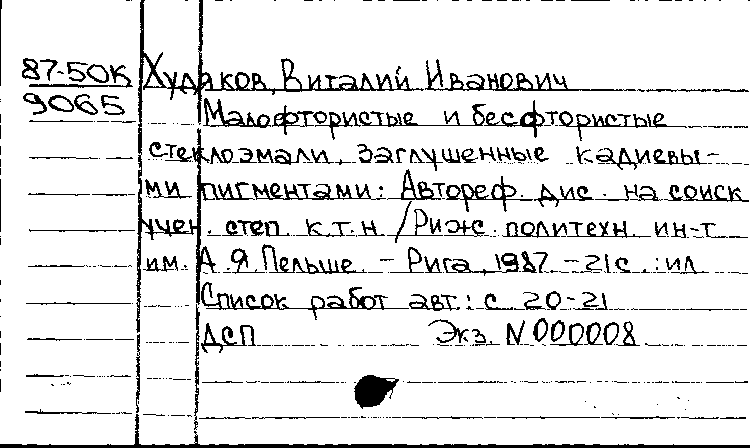 87-50К Худяков, Виталий Иванович
9065 Малофтористые и бесфтористые
стеклоэмали, заглушенные кадиевы-
ми пигментами: Автореф. дис. на соиск
учен. степ. к.т.н. /Рижс. политехн. ин-т
им. А.Я.Пельше. - Рига, 1987. - 21с.: ил
Список работ авт.: с. 20-21
ДСП Экз. N 000008